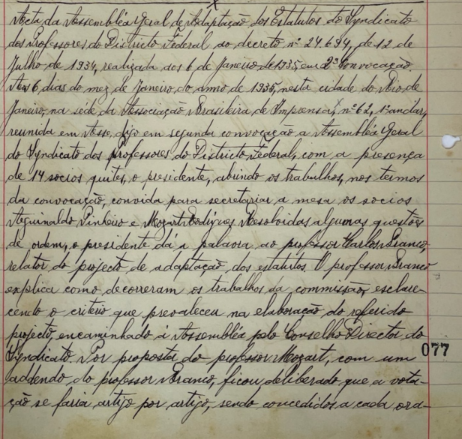 Acta da Assembléa Geral de Adaptação dos Estatutos do Syndicato
dos Professores do Districto Federal ao decreto nº 24.694, de 12 de
Julho de 1934, realizada aos 6 de Janeiro de 1935 em 2ª convocação.
Aos 6 dias do mez de Janeiro do anno de 1935, nesta cidade do Rio de
Janeiro, na séde da Associação Brasileira de Imprensa, nº 62, 1º andar,
reunida em segunda convocação a Assembléa Geral
do Syndicato dos Professores do Districto Federal, com a presença
de 14 socios quites, o presidente, abrindo os trabalhos, nos termos
da convocação, convida para secretariar a mesa os socios
Aguinaldo Pinheiro e Mozart. Resolvidas algumas questões
de ordem, o presidente dá a palavra ao professor Carlos Branco,
relator do projecto de adaptação dos estatutos. O professor Branco
explica como decorreram os trabalhos da commissão, esclare-
cendo o criterio que prevaleceu na elaboração do referido
projecto, encaminhado á Assembléa pelo Conselho Director do
Syndicato. Por proposta do professor Mozart, com um
addendo do professor Branco, ficou deliberado que a vota-
ção se faria artigo por artigo, sendo concedidos a cada ora-
077